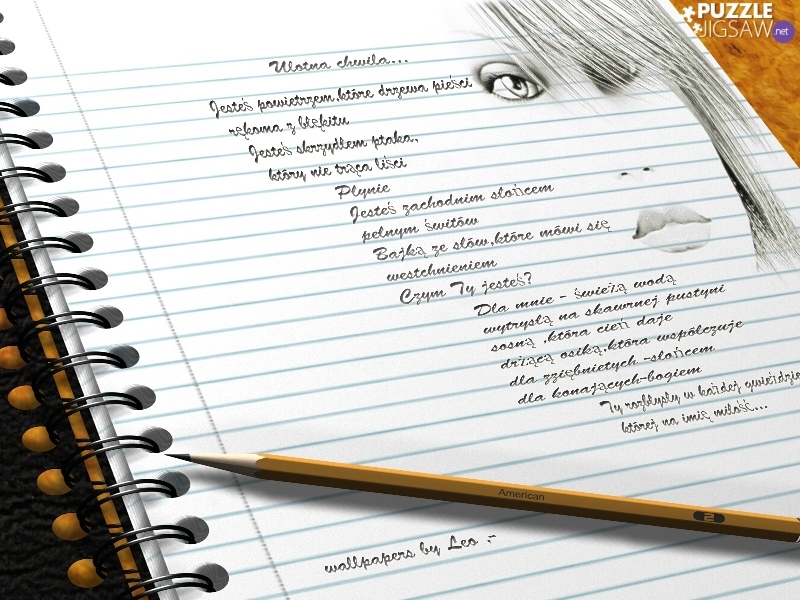 PUZZLE
JIGSAW.net
Ulotna chwila...
Jesteś powietrzem,które drzewa pieści
rękoma z błękitu
Jesteś skrzydłem ptaka,
który nie trąca liści
Płynie
Jesteś zachodnim słońcem
pełnym świtów
Bajką ze słów,które mówi się
westchnieniem
Czym Ty jesteś?
Dla mnie - świeżą wodą
wytrysłą na skawrnej pustyni
sosną ,która cień daje
drżącą osiką,która współczuje
dla zziębnietych -słońcem
dla konających-bogiem
Ty rozbłysły w każdej gwieździe
której na imię miłość...
American
2
wallpapers by Leo :-